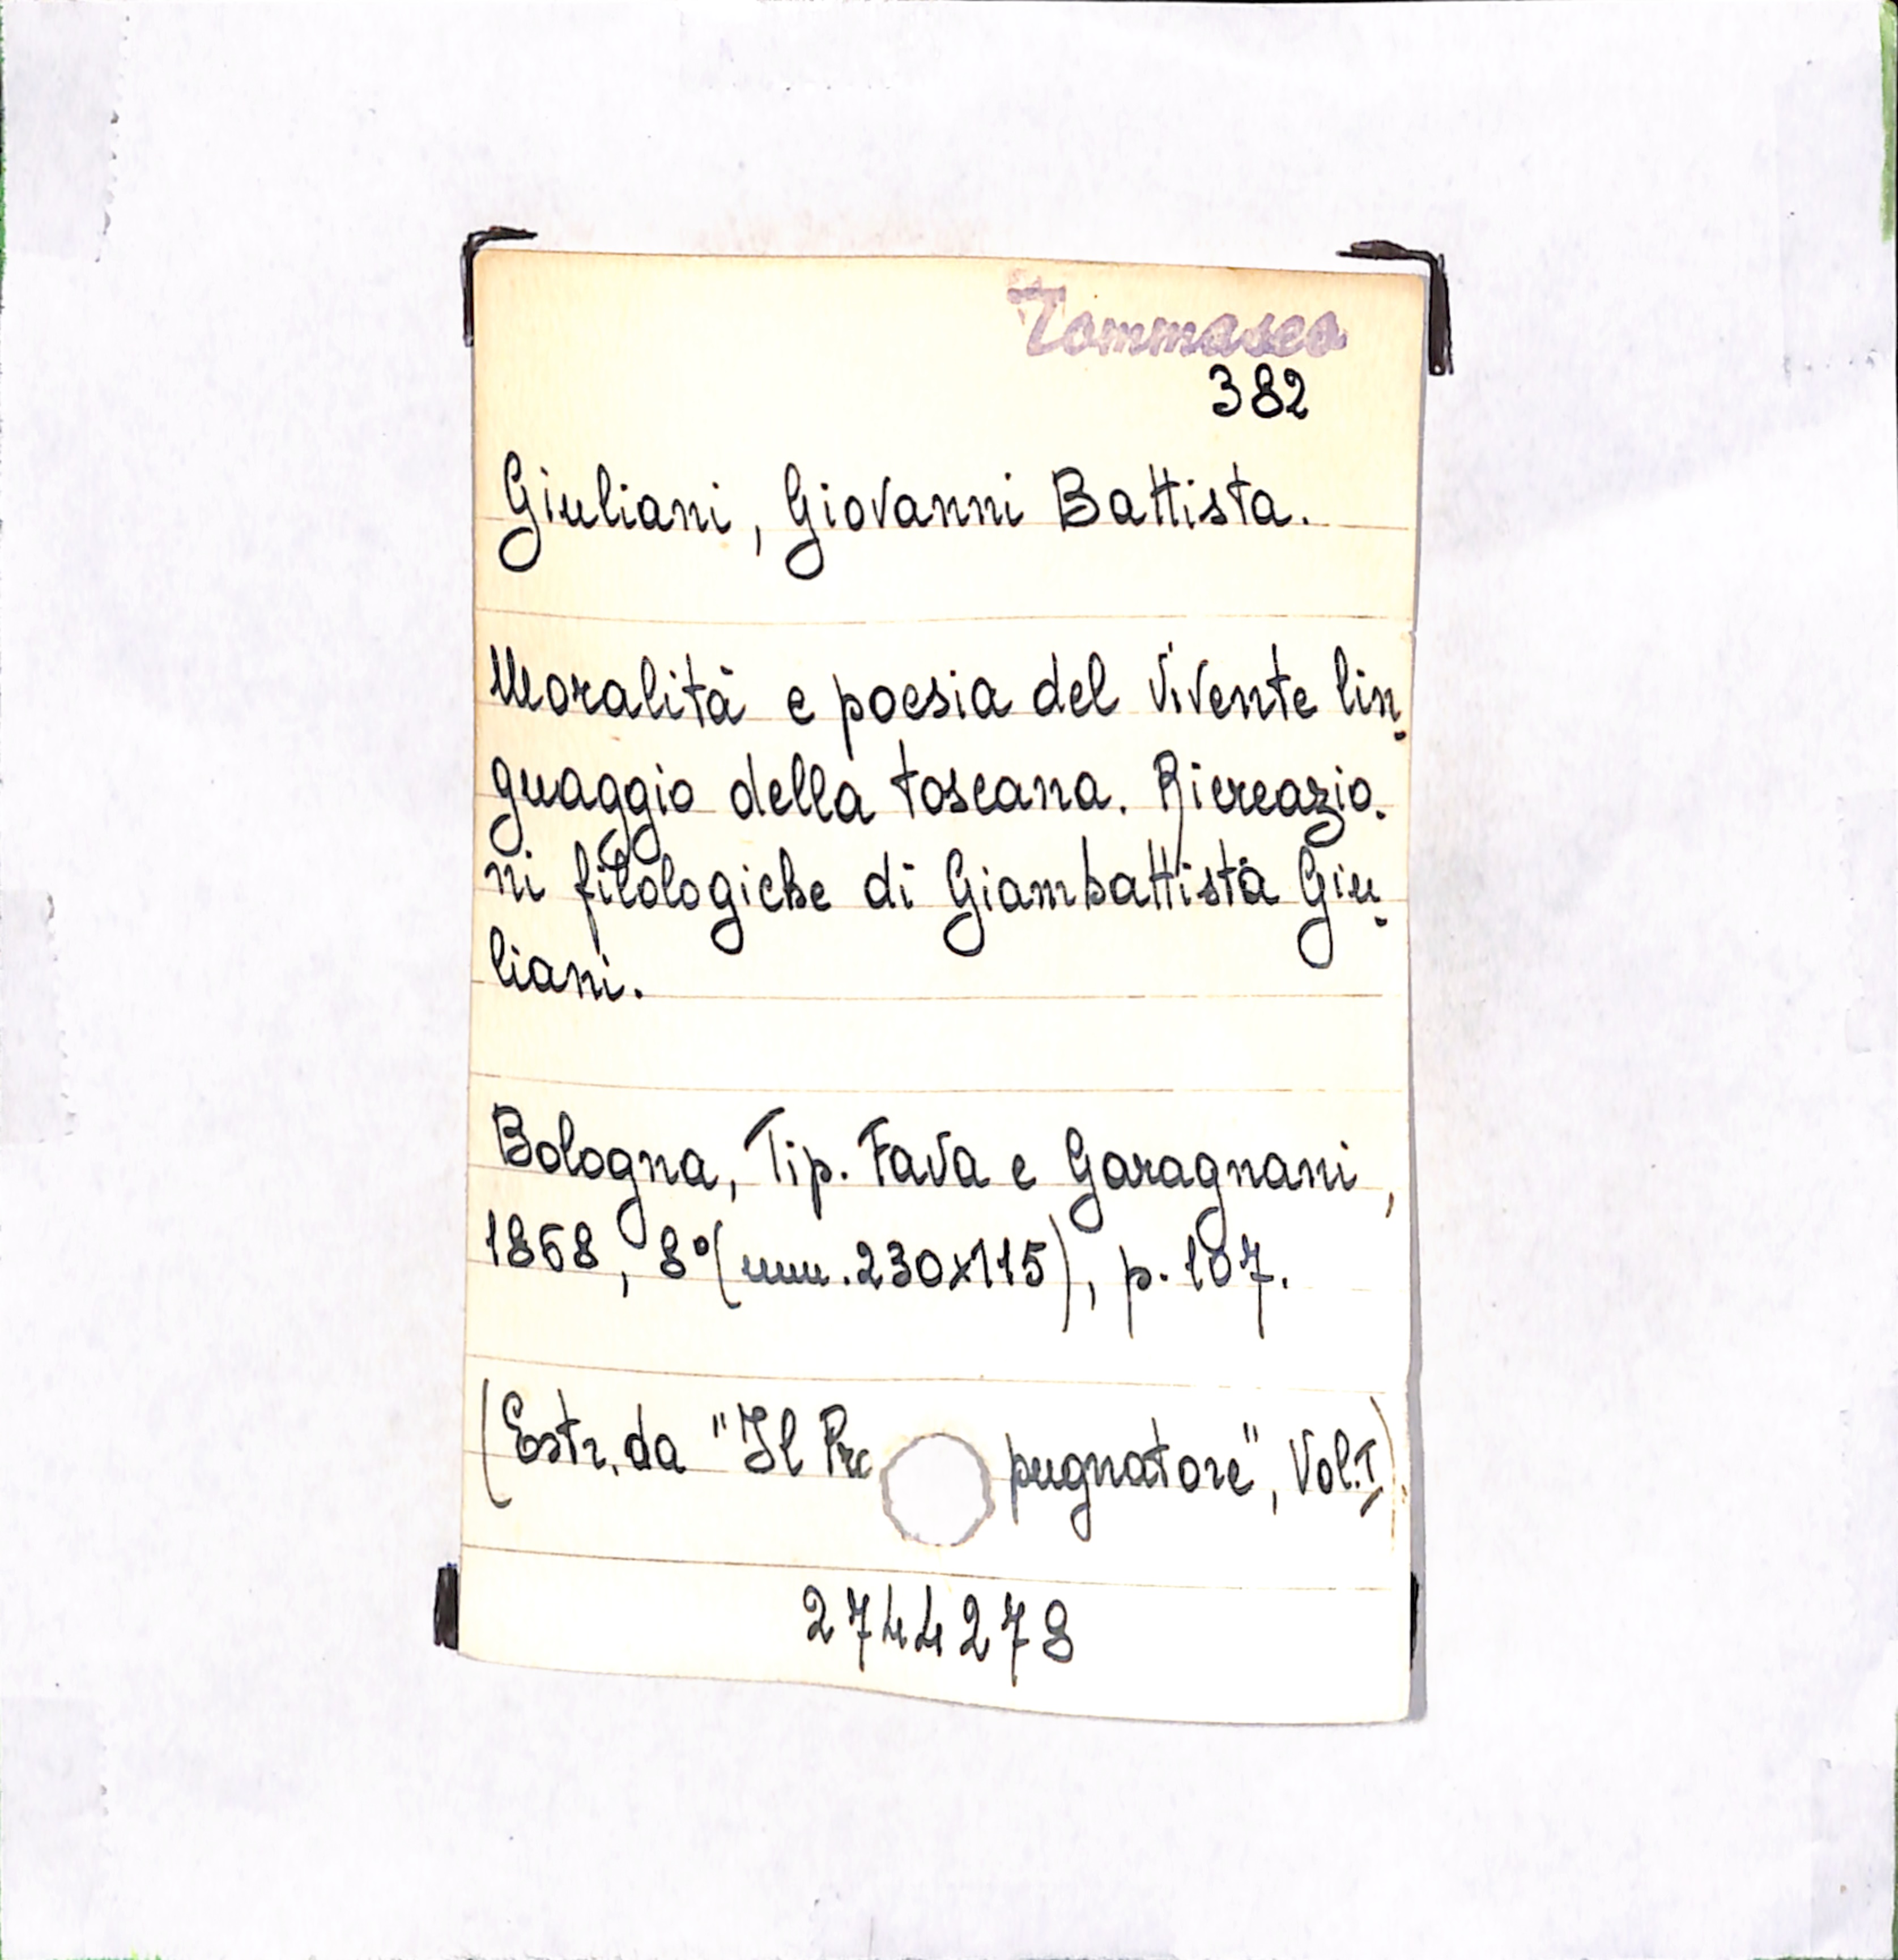 Tommaseo
382
Giuliani, Giovanni Battista.
Moralità e poesia del vivente lin-
guaggio della toscana. Ricreazio-
ni filologiche di Giambattista Giu-
liani.
Bologna, Tip. Fava e Garagnani,
1868, 8°(mm.230x115), p. 107.
(Estr. da "Il Pro pugnatore", Vol. I).
2744278